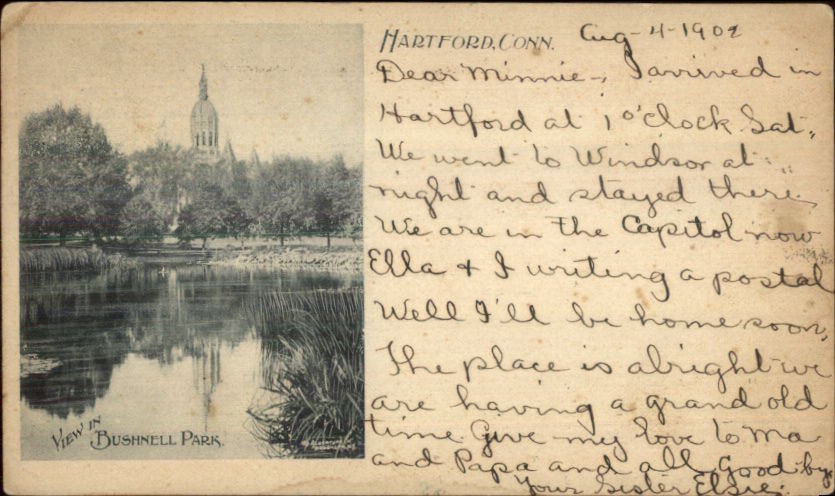 HARTFORD, CONN. Aug-4-1902
Dear Minnie-, I arrived in
Hartford at 1 o'clock Sat.
We went to Windsor at
night and stayed there,
We are in the Capitol now
Ella + I writing a postal
Well I'll be home soon,
The place is alright we
are having a grand old
time Give my love to Ma
and Papa and all, Good by,
Your Sister Elsie.
VIEW IN
BUSHNELL PARK.